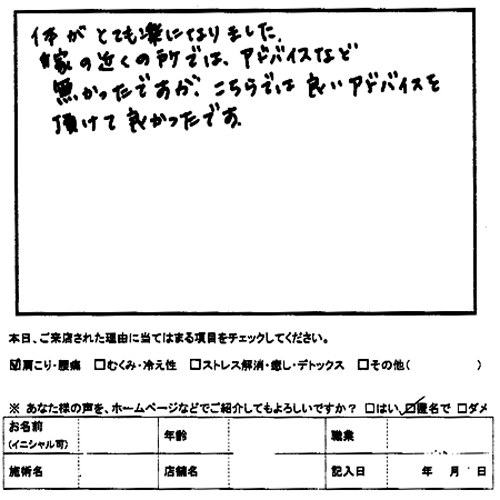 体がとても楽になりました。
家の近くの所では、アドバイスなど
無かったですが、こちらでは良いアドバイスを
頂けて良かったです。
本日、ご来店された理由に当てはまる項目をチェックしてください。
☑肩こり・腰痛 □むくみ・冷え性 □ストレス解消・癒し・デトックス □その他( )
※ あなた様の声を、ホームページなどでご紹介してもよろしいですか? □はい ☑匿名で □ダメ
お名前 年齢 職業
(イニシャル可)
施術名 店舗名 記入日 年 月 日